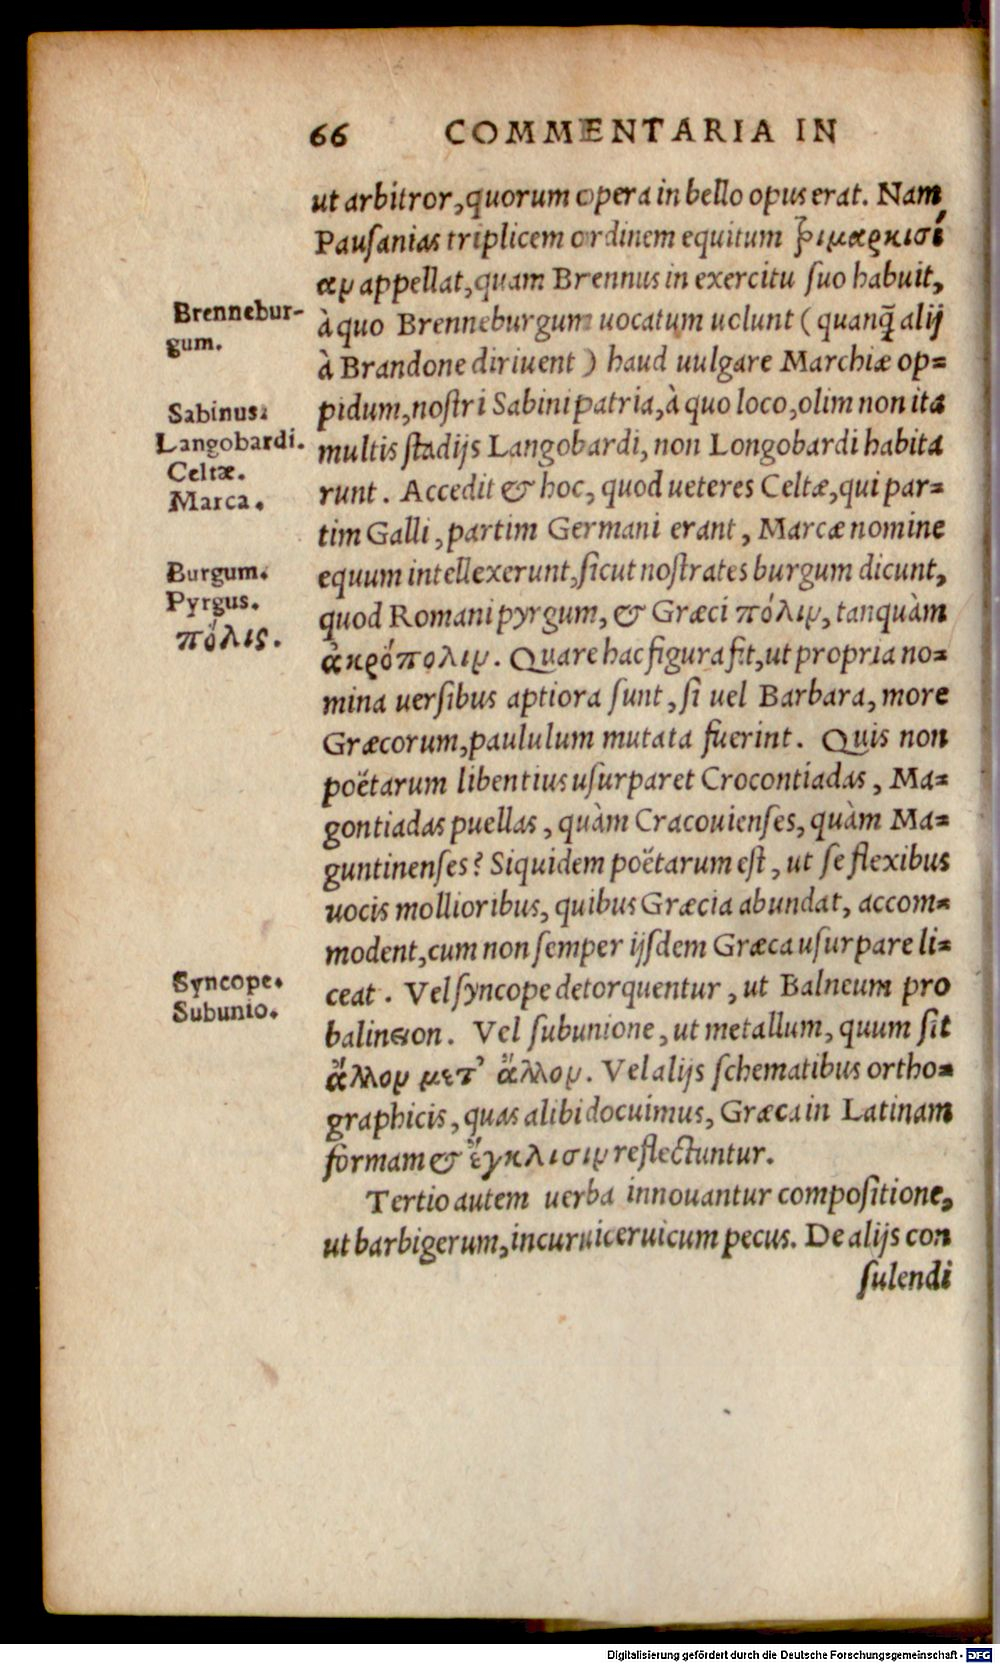 66 COMMENTARIA IN
ut arbitror, quorum opera in bello opus erat. Nam
Pausanias triplicem ordinem equitum τριμαρκισί
αν appellat, quam Brennus in exercitu suo habuit,
Brennebur-
gum.
à quo Brenneburgum uocatum uolunt (quanq̃ alij
à Brandone diriuent) haud uulgare Marchiæ op=
Sabinus.
pidum, nostri Sabini patria, à quo loco, olim non ita
Langobardi.
multis stadijs Langobardi, non Longobardi habita
Celtæ.
Marca.
runt. Accedit & hoc, quod ueteres Celtæ, qui par=
tim Galli, partim Germani erant, Marcæ nomine
Burgum.
equum intellexerunt, sicut nostrates burgum dicunt,
Pyrgus.
πόλις.
quod Romani pyrgum, & Græci πόλιν, tanquàm
ἀκρόπολιν. Quare hac figura fit, ut propria no=
mina uersibus aptiora sunt, si uel Barbara, more
Græcorum, paululum mutata fuerint. Quis non
poëtarum libentius usurparet Crocontiadas, Ma=
gontiadas puellas, quàm Cracouienses, quàm Ma=
guntinenses? Siquidem poëtarum est, ut se flexibus
uocis mollioribus, quibus Græcia abundat, accom=
modent, cum non semper ijsdem Græca usurpare li=
Syncope.
ceat. Vel syncope detorquentur, ut Balneum pro
Subunio.
balineon. Vel subunione, ut metallum, quum sit
ἄλλον μετ' ἄλλον. Vel alijs schematibus ortho=
graphicis, quas alibi docuimus, Græca in Latinam
formam & ἔγκλισιν reflectuntur.
Tertio autem uerba innouantur compositione,
ut barbigerum, incuruiceruicum pecus. De alijs con
sulendi
Digitalisierung gefördert durch die Deutsche Forschungsgemeinschaft - DFG